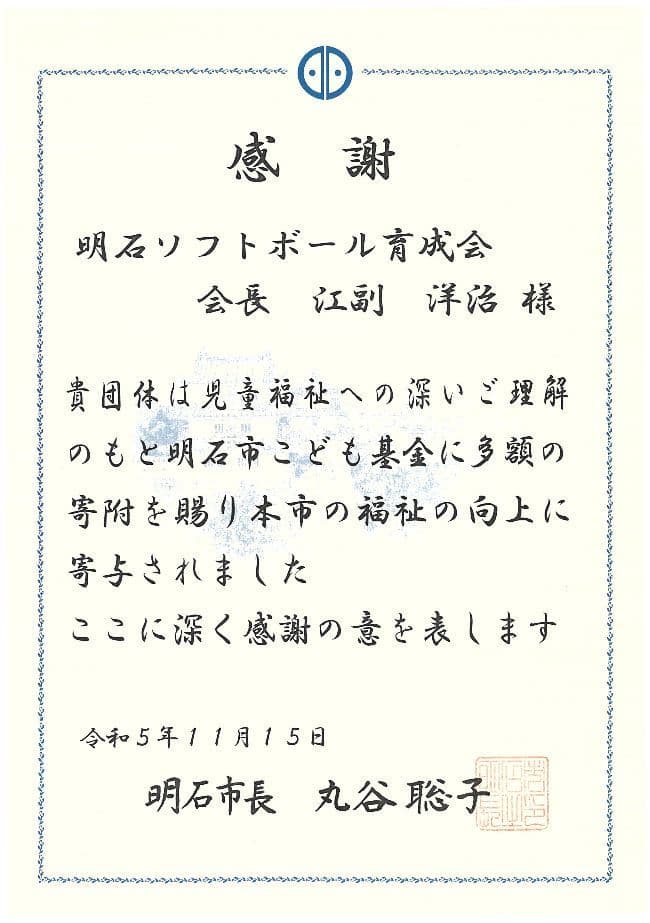 感　謝
明石ソフトボール育成会
会長　江副　洋治 様
貴団体は児童福祉への深いご理解
のもと明石市こども基金に多額の
寄附を賜り本市の福祉の向上に
寄与されました
ここに深く感謝の意を表します
令和５年１１月１５日
明石市長　丸谷 聡子